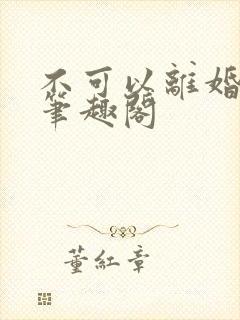 不可以離婚
筆趣閣
董紅章